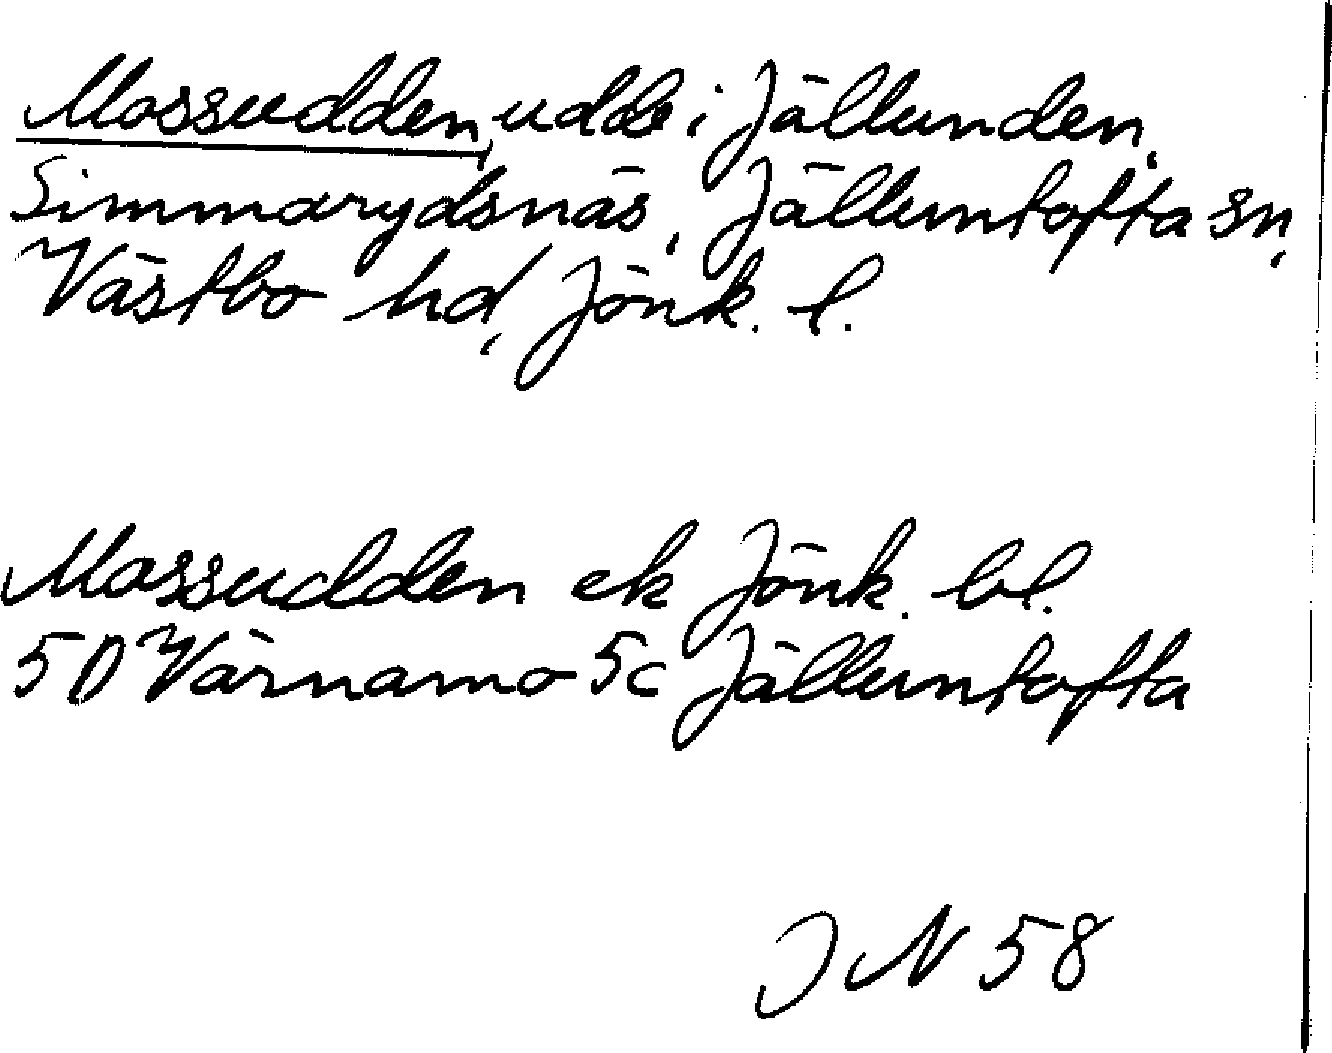 Mossudden, udde i Jällunden,
Simmarydsnäs, Jälluntofta sn,
Västbo hd, Jönk. l.
Mossudden ek Jönk. bl.
5D Värnamo 5c Jälluntofta
JN 58